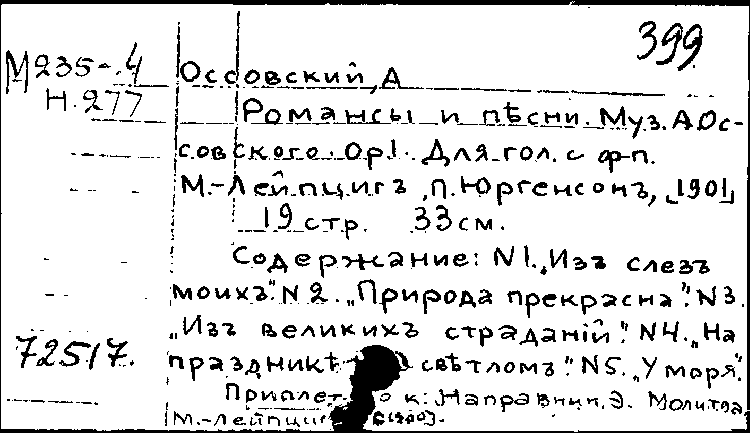 399
М235-4
Н.277
Оссовский, А
Романсы и пѣсни. Муз. А.Ос-
совского. Op1. Для гол. с ф-п.
М.-Лейпцигъ, п. Юргенсонъ, [1901]
19 стр. 33 см.
Содержание: N1. „Изъ слезъ
моихъ". N2. „Природа прекрасна". N3.
„Изъ великихъ страданій". N4. „На
праздникѣ свѣтломъ". N5. „У моря".
72517.
к: Направник, Э. Молитва
М.-Лейпциг [1900].